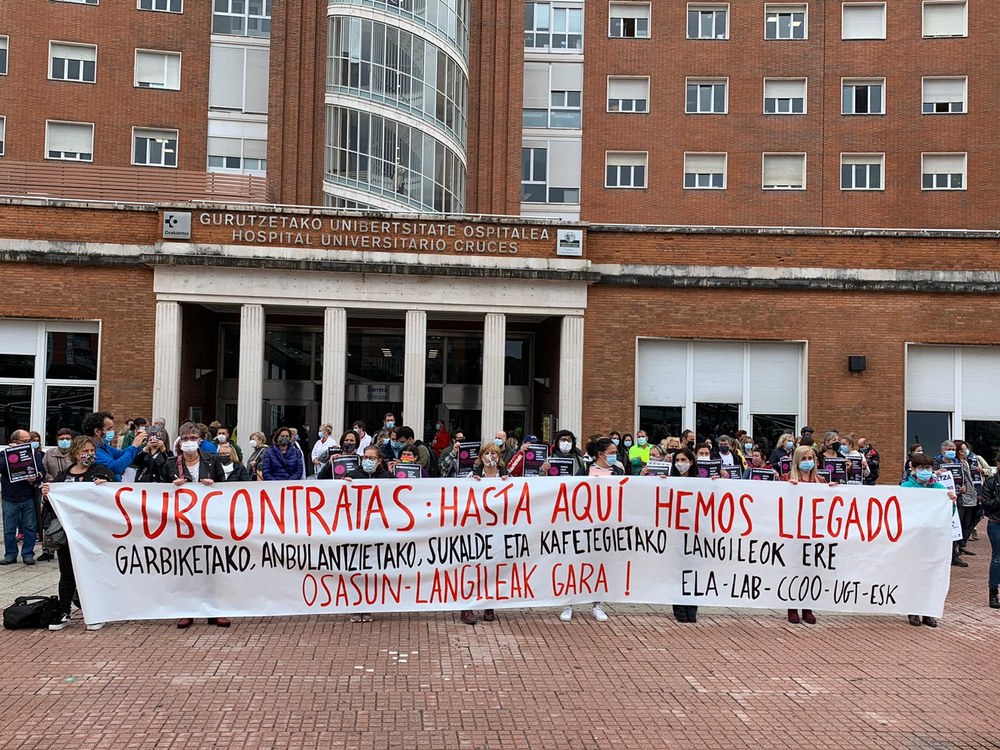 Osakidetza
GURUTZETAKO UNIBERTSITATE OSPITALEA
HOSPITAL UNIVERSITARIO CRUCES
SUBCONTRATAS : HASTA AQUÍ HEMOS LLEGADO
GARBIKETAKO, ANBULANTZIETAKO, SUKALDE ETA KAFETEGIETAKO LANGILEOK ERE
OSASUN-LANGILEAK GARA !
ELA-LAB-CCOO-UGT-ESK